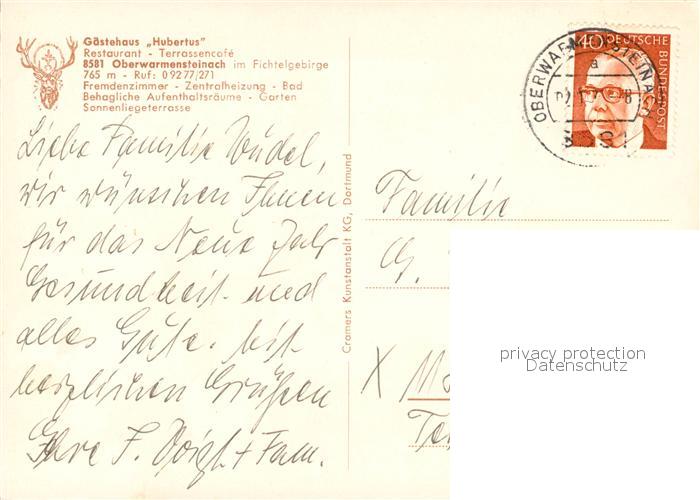 Gästehaus „Hubertus"
Restaurant - Terrassencafé
8581 Oberwarmensteinach im Fichtelgebirge
765 m - Ruf: 09277/271
Fremdenzimmer - Zentralheizung - Bad
Behagliche Aufenthaltsräume - Garten
Sonnenliegeterrasse
Liebe Familie
wir wünschen Ihnen
für das Neue Jahr
Gesundheit und
alles Gute. Mit
herzlichen Grüßen
Ihre F. Voigt + Fam.
Cramers Kunstanstalt KG, Dortmund
40 DEUTSCHE BUNDESPOST
OBERWARMENSTEINACH
a
Familie
G.
X
privacy protection
Datenschutz